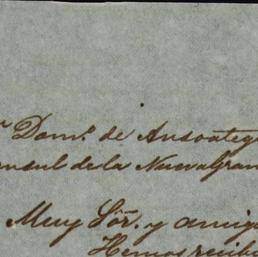 Dom.º de Ansoateg
onsul de la Nueva Gran
Muy Sôr. y amig
Hemos recibi